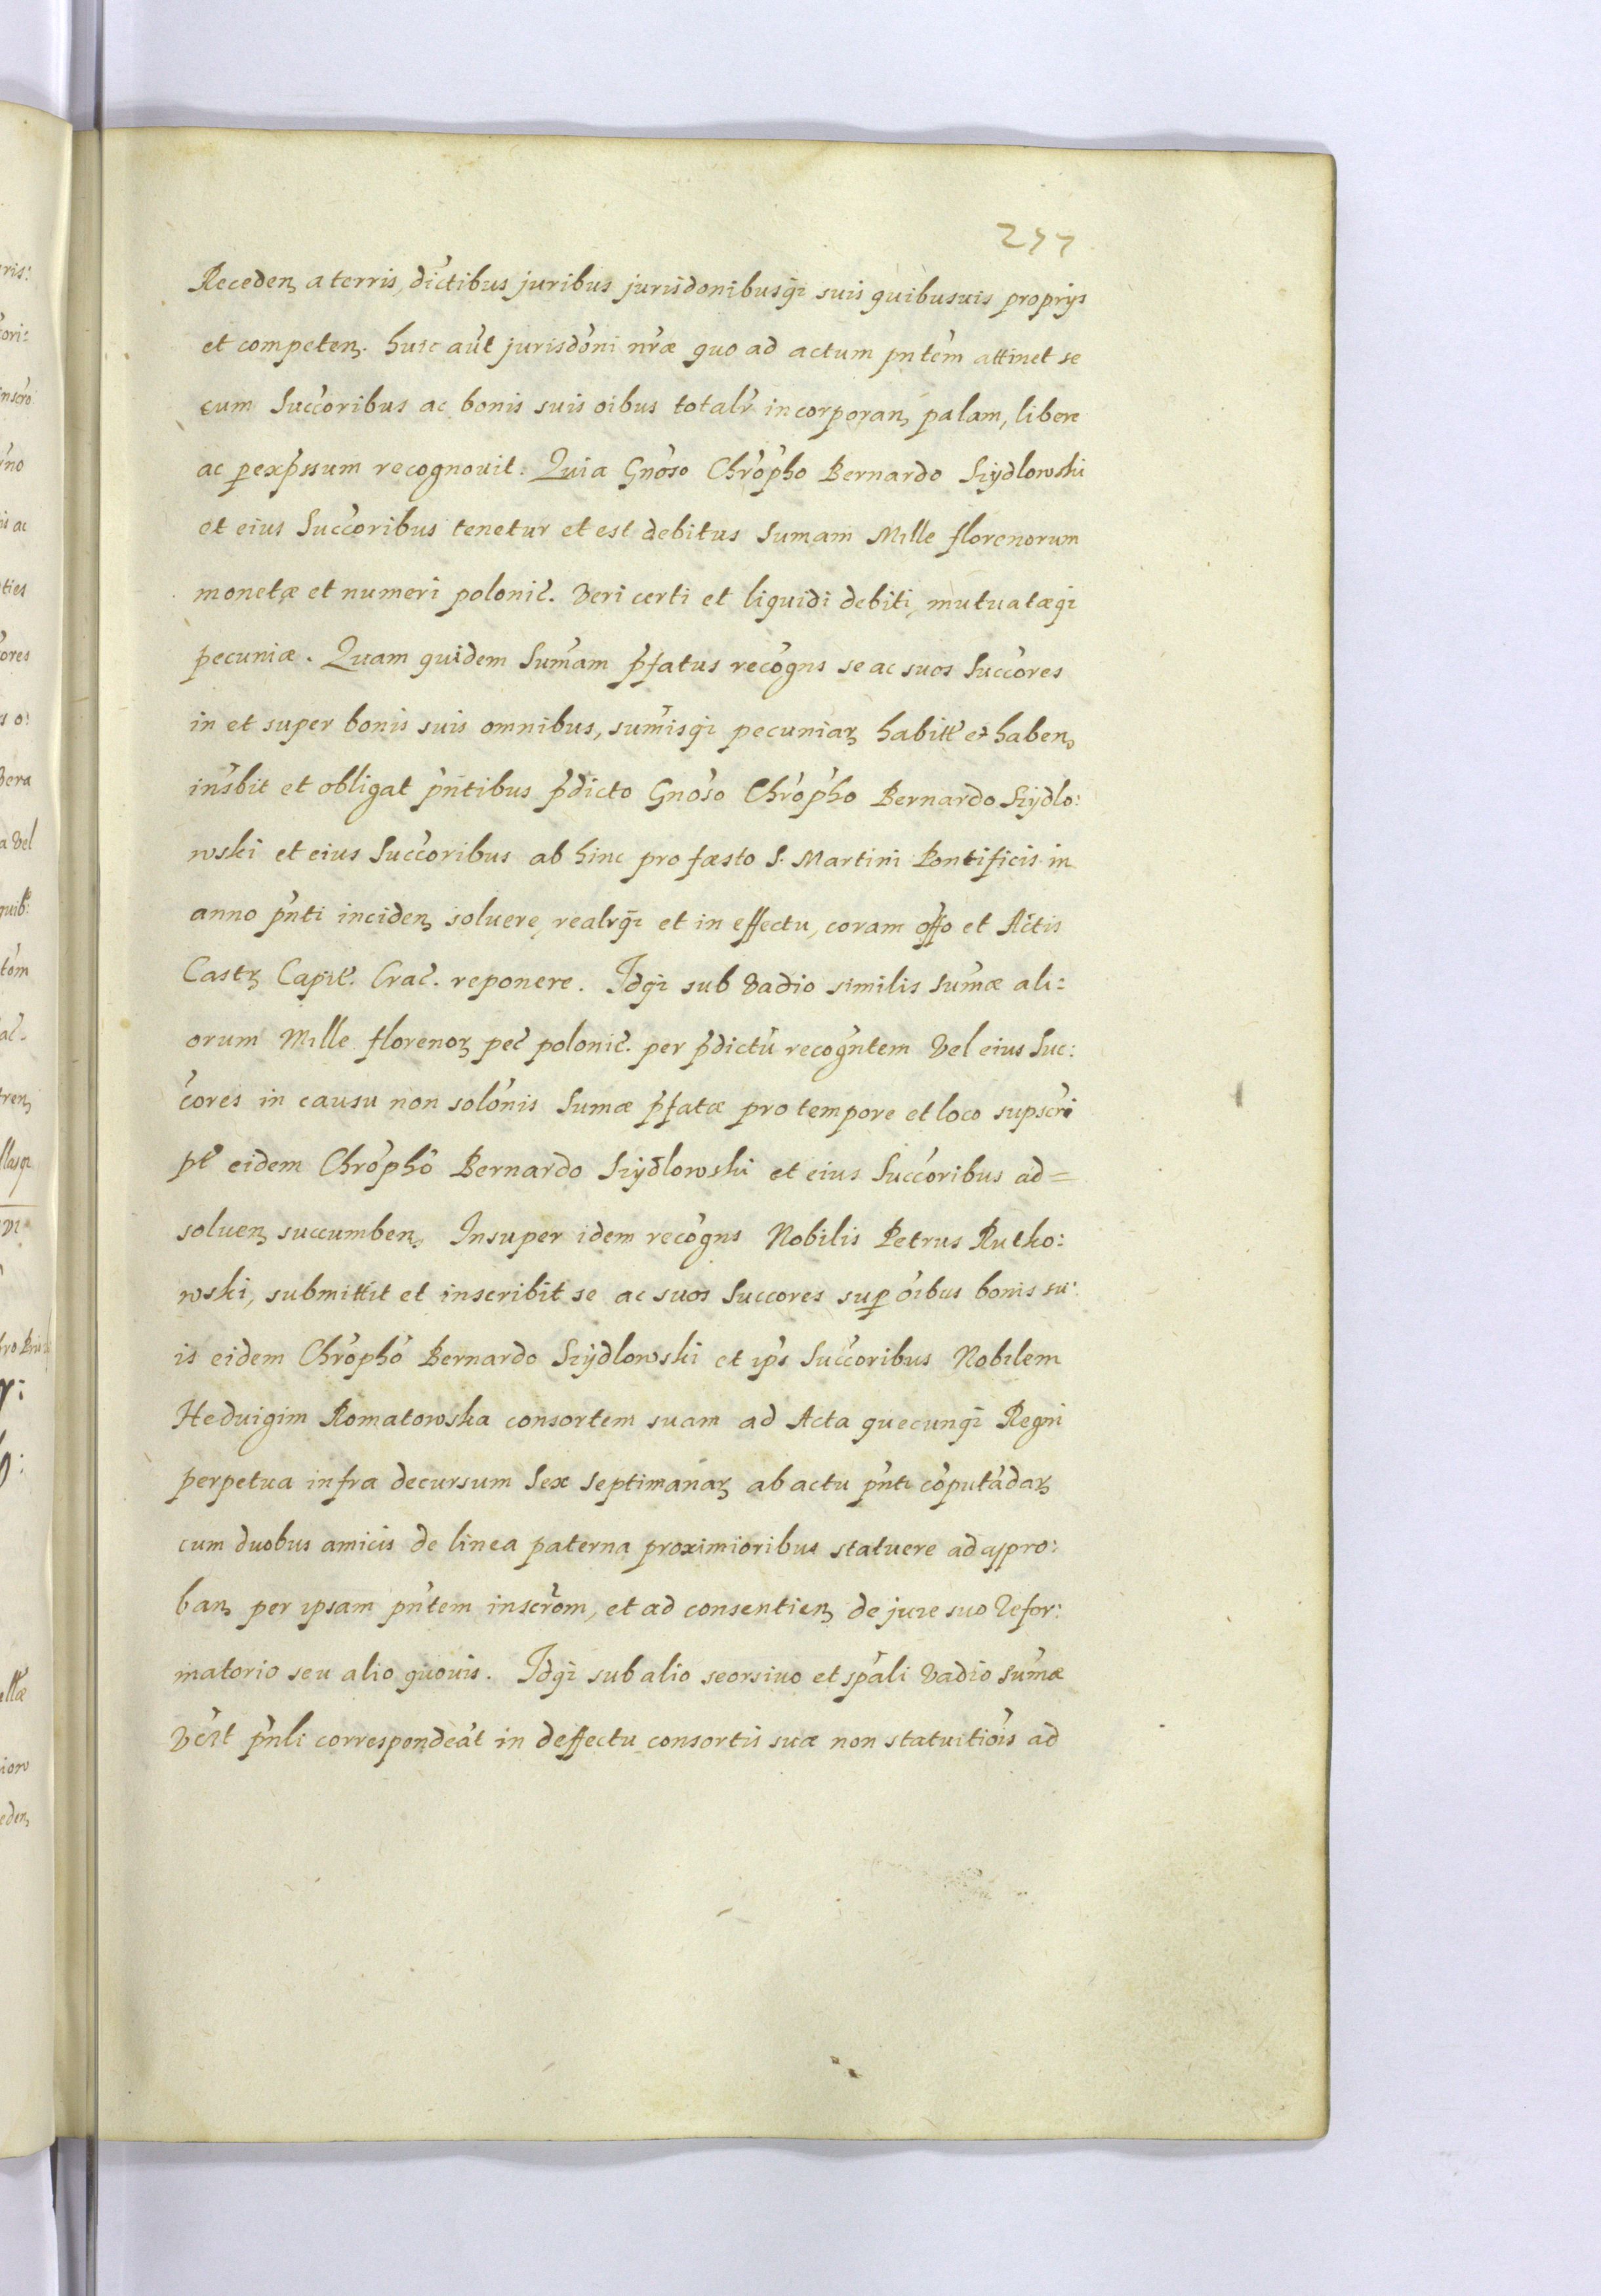 277
Receden₃ a terris, dictibus juribus jurisdonibusq; suis quibusuis proprijs
et competen₃. huic aūt jurisdōni nr̄æ quo ad actum pn̄tem attinet se
cum Succ̄oribus ac bonis suis oībus totalr̄ incorporan₃ palam, libere
ac p̱ exp̄ssum recognouit. Quia Gnōso Chrōpho Bernardo Szydlowski
et eius Succ̄oribus tenetur et est debitus Sumam Mille florenorum
monetæ et numeri polonic̄. Veri certi et liquidi debiti, mutuatæq;
pecuniæ. Quam quidem Sum̄am p̄fatus recōgns se ac suos Succ̄ores
in et super bonis suis omnibus, sum̄isq; pecuniaꝝ habitt̄ et haben₃
ins̄bit et obligat pn̄tibus p̄dicto Gnōso Chrōpho Bernardo Szydlo:
wski et eius Succ̄oribus ab hinc pro fæsto S. Martini Pontificis in
anno pn̄ti inciden₃ soluere, realrq; et in effectu, coram offo et Actis
Castꝝ Capit̄. Crac̄. reponere. Idq; sub Vadio similis Sum̄æ ali:
orum Mille florenoꝝ pec̄ polonic̄. per p̄dictū recogn̄tem Vel eius Suc:
c̄ores in causu non solōnis Sumæ p̄fatæ pro tempore et loco supscri
pt̄ eidem Chrōphō Bernardo Szydlowski et eius Succ̄oribus ad=
soluen₃ succumben₃. Insuper idem recōgns Nobilis Petrus Rutko:
wski, submittit et inscribit se ac suos Succores sup̱ oībus bonis su:
is eidem Chrōphō Bernardo Szydlowski et ip̄s Succ̄oribus Nobilem
Heduigim Romatowska consortem suam ad Acta quecunq; Regni
perpetua infra decursum Sex Septimanaꝝ ab actu pn̄ti cōputādaꝝ
cum duobus amicis de linea paterna proximioribus statuere ad appro:
ban₃ per ipsam pn̄tem inscrōm, et ad consentien₃ de jure suo Refor:
matorio seu alio quouis. Idq; sub alio seorsiuo et spāli Vadio sum̄æ
pn̄li correspondeāt in deffectu consortis suæ non statuitiōis ad